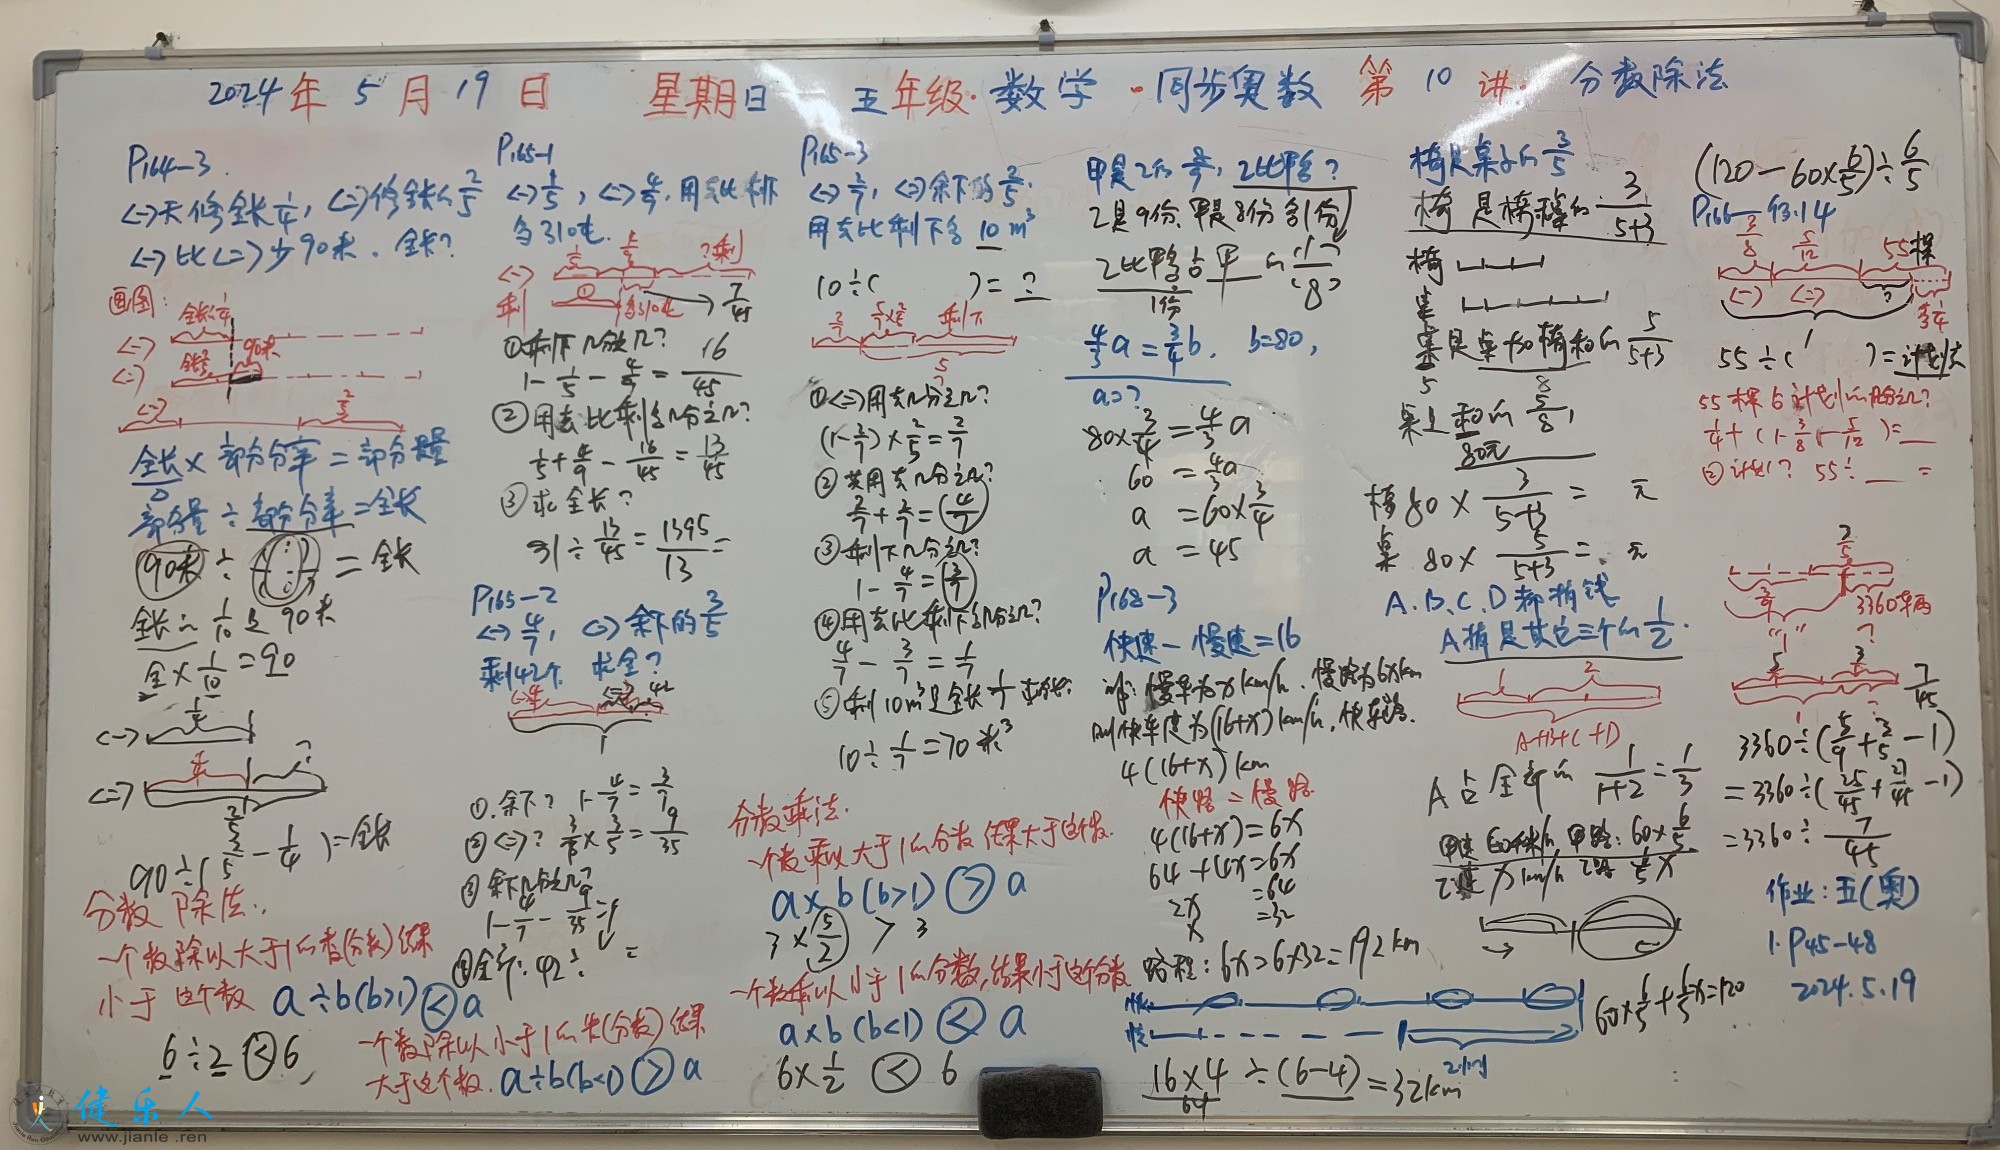 2024年5月19日 星期日 五年级·数学·同步奥数 第10讲. 分数除法
P164-3.
<一>天修全长1/4, <二>修全长的2/5
<一>比<二>少90米. 全长?
画图:
全长的1/4
<一>
90米
<二>
<二> 2/5
全长×部分分率=部分量
部分量÷部分分率=全长
90米÷ =全长
全长的1/10是90米
全×1/10=90
<一> 1/4
<二>
2/5
90÷(2/5-1/4)=全长
分数除法:
一个数除以大于1的数(分数)结果
小于这个数 a÷b(b>1)<a
6÷2<6
一个数除以小于1的数(分数)结果
大于这个数. a÷b(b<1)>a
P165-1
<一>1/5, <二>4/9, 用去比剩下
多31吨.
<一> 1/5 ?剩
剩 ① 多31吨 → 7/45
①剩下几分之几?
1-1/5-4/9=16/45
②用去比剩多几分之几?
1/5+4/9-16/45=13/45
③求全长?
31÷13/45=1395/13=
P165-2
<一>4/7, <二>余下的3/5
剩42个. 求全?
1
①.余下? 1-4/7=3/7
②<二>? 3/7×3/5=9/35
③余下几分之几?
1-4/7-9/35=
④全部: 42÷ =
P165-3
<一>2/7, <二>余下的2/5.
用去比剩下多10m³
10÷( )=?
2/7 5/7×2/5 剩下
①<二>用去几分之几?
(1-2/7)×2/5=2/7
②共用去几分之几?
2/7+2/7=(4/7)
③剩下几分之几?
1-4/7=(3/7)
④用去比剩下多几分之几?
4/7-3/7=1/7
⑤
10÷1/7=70米³
分数乘法.
一个数乘以大于1的分数 结果大于这个数.
a×b(b>1)>a
3×5/2>3
一个数乘以小于1的分数,结果小于这个分数
a×b(b<1)<a
6×1/2<6
甲是乙的8/9, 乙比甲多?
乙是9份, 甲是8份 多1份
乙比甲多占甲的(1)/(8)
1份
4/3a=3/4b. b=80,
a=?
80×3/4=4/3a
60=4/3a
a=60×3/4
a=45
P168-3
快速-慢速=16
设:慢车为xkm/h. 慢路为6xkm
则快车度为(16+x)km/h, 快车路.
4(16+x)km
快路=慢路
4(16+x)=6x
64+4x=6x
2x=64
x=32
路程:6x=6×32=192km
16×4÷(6-4)=32km
64
椅是桌子的3/5
椅是椅桌的3/5+3
椅
桌
桌是桌加椅和的5/5+3
5 8
桌是和的5/8,
80元
椅80×3/5+3= 元
桌80×5/5+3= 元
A.B.C.D都捐钱
A捐是其它三个的1/2.
1 2
A+B+C+D
A占全部的1/1+2=1/3
甲速60千米/h, 甲路:60×6/5
乙速xkm/h 乙路 6/5x
60×6/5+6/5x=120
(120-60×6/5)÷6/5
P166-例.14
3/8 5/12 55棵
<一> <二> ? 1/4
1
55÷( )=计划
55棵占计划的几分之几?
1/4+(1-3/8-5/12)=__
②计划? 55÷__=
3360辆
“1” ?
7/45
3360÷(5/9+3/5-1)
=3360÷(25/45+27/45-1)
=3360÷7/45
作业:五(奥)
1.P45-48
2024.5.19
健乐人
www.jianle.ren